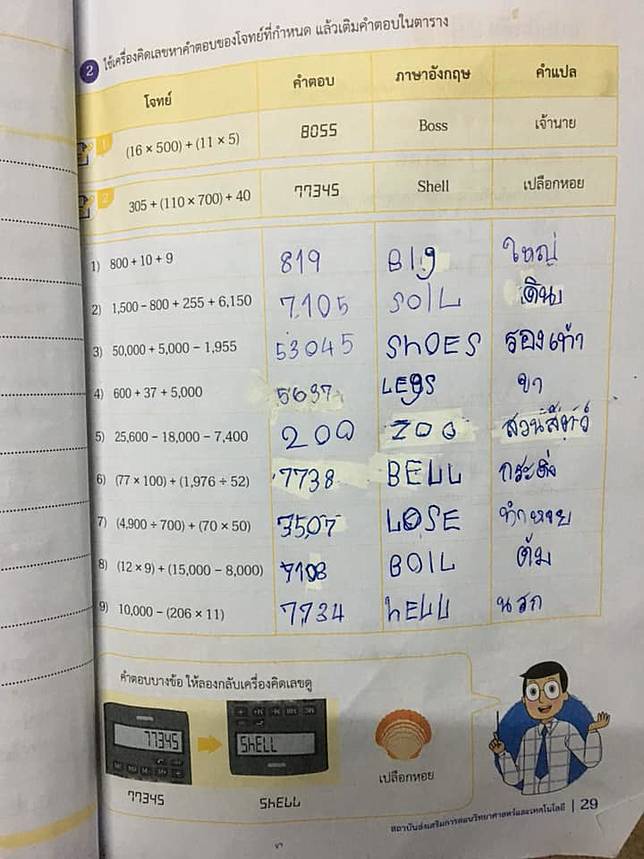 2 ใช้เครื่องคิดเลขหาคำตอบของโจทย์ที่กำหนด แล้วเติมคำตอบในตาราง
โจทย์ คำตอบ ภาษาอังกฤษ คำแปล
1 (16 × 500) + (11 × 5) 8055 Boss เจ้านาย
2 305 + (110 × 700) + 40 77345 Shell เปลือกหอย
1) 800 + 10 + 9 819 BIg ใหญ่
2) 1,500 – 800 + 255 + 6,150 7105 SOIL ดิน
3) 50,000 + 5,000 – 1,955 53045 ShOES รองเท้า
4) 600 + 37 + 5,000 5637 LEgS ขา
5) 25,600 – 18,000 – 7,400 200 ZOO สวนสัตว์
6) (77 × 100) + (1,976 ÷ 52) 7738 BELL กระดิ่ง
7) (4,900 ÷ 700) + (70 × 50) 3507 LOSE ทำหาย
8) (12 × 9) + (15,000 – 8,000) 7108 BOIL ต้ม
9) 10,000 – (206 × 11) 7734 hELL นรก
คำตอบบางข้อ ให้ลองกลับเครื่องคิดเลขดู
77345 ShELL
เปลือกหอย
77345 ShELL
สถาบันส่งเสริมการสอนวิทยาศาสตร์และเทคโนโลยี | 29